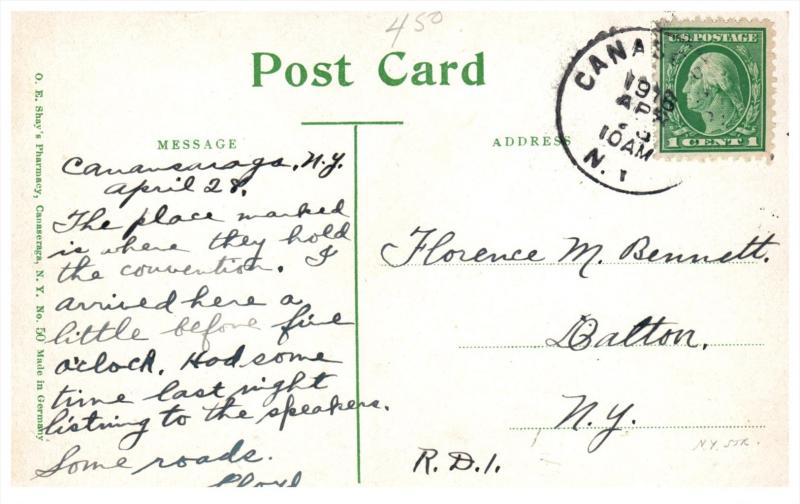 450
Post Card
CANA
19
AP
10AM
N. Y
U.S. POSTAGE
1 CENT 1
MESSAGE
ADDRESS
O. E. Shay's Pharmacy, Canaseraga, N. Y. No. 50 Made in Germany
Canansaraga, N.Y.
April 28.
The place marked
is where they hold
the convention. I
arrived here a
little before five
o'clock. Had some
time last night
listning to the speakers.
Some roads.
Floyd
Florence M. Bennett.
Dalton,
N.Y.
R.D.1.